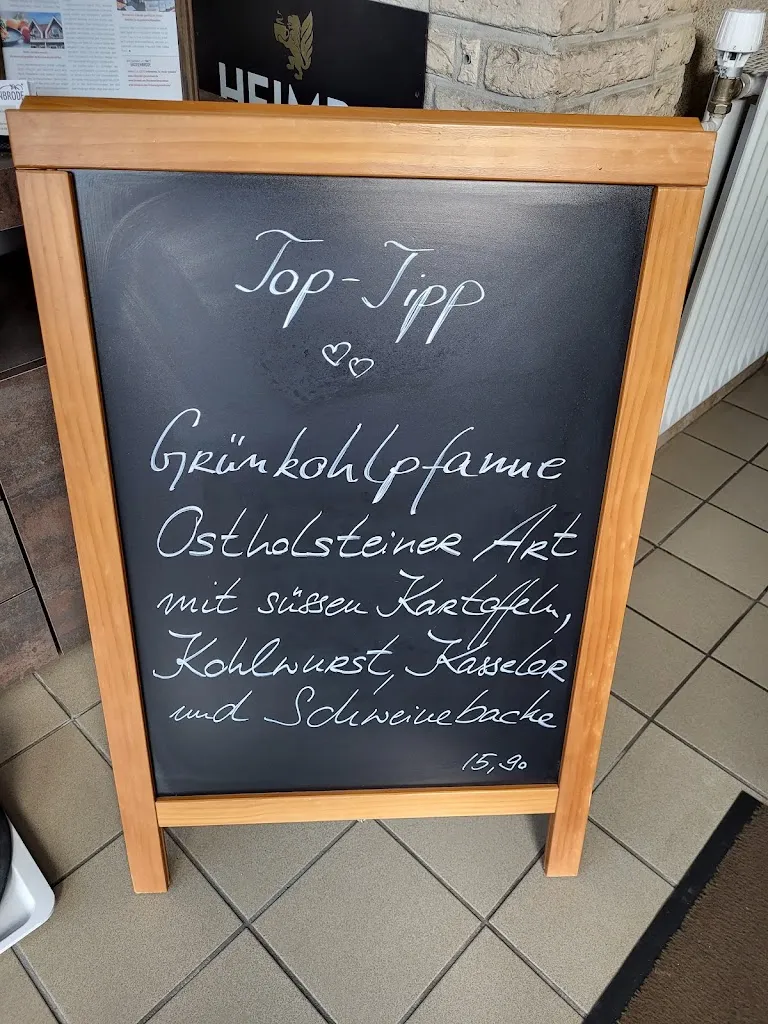 NBRODE
HEIM
Top-Tipp
Grünkohlpfanne
Ostholsteiner Art
mit süssen Kartoffeln,
Kohlwurst, Kasseler
und Schweinebacke
15,90